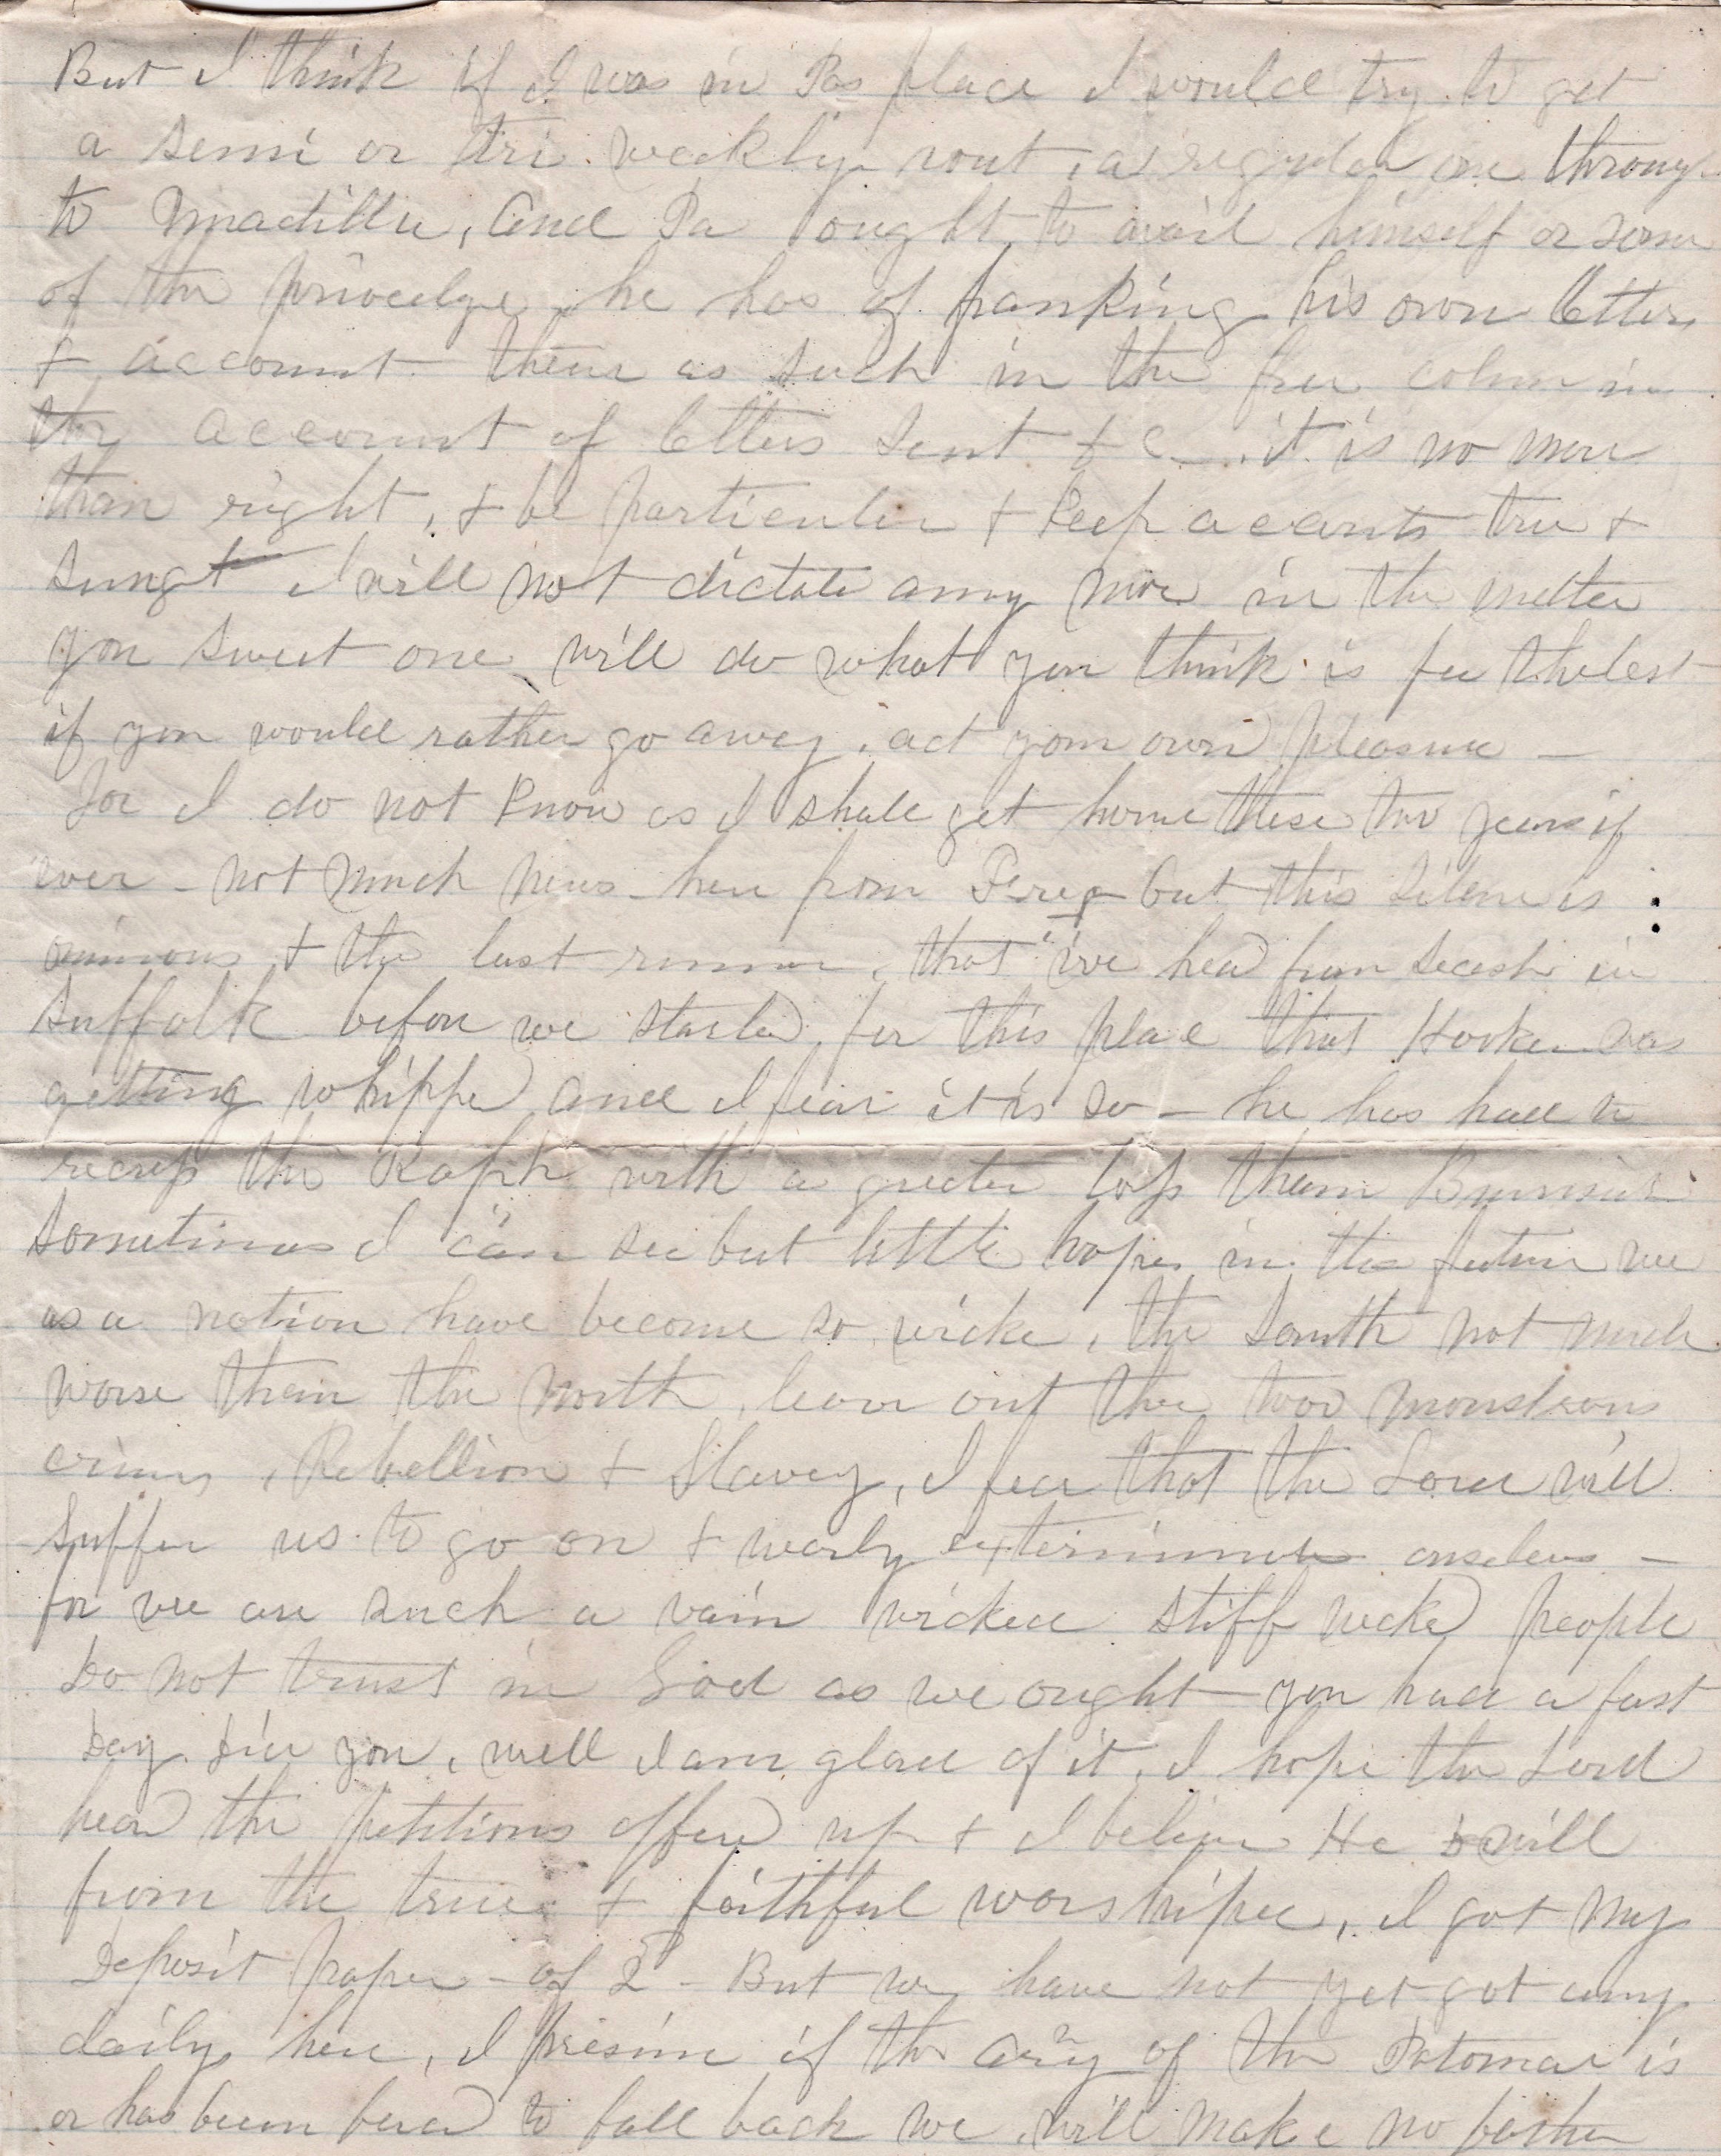 But I think if I was in Pas place I would try to get
a semi or tri weekly rout, a regular one through
to Unadilla, and Pa ought to avail himself or some
of the privcelge he has of franking his own letters
& account them as such in the free colum in
the account of letters sent &c - it is no more
than right, & be particular & keep accants true &
I will not dictate any more in the matter
you sweet one will do what you think is for the best
if you would rather go away, act your own pleasure -
For I do not know as I shall get home these two years if
ever - not much news here from but this silence is
ominous & the last rumor, that we hea from Secesh in
Suffolk before we started for this place that Hooker was
getting whipped and I fear it is so - he has had to
recross the Raph with a greater loss than Burnside
sometimes I can see but little hope in the future we
as a nation have become so wicke, the South not much
worse than the North, leave out the two monstrous
crimes, Rebellion & Slavery, I fear that the Lord will
suffer us to go on & nearly exterminate ourselves -
for we are such a vain wicked stiff necked people
Do not trust in God as we ought - you had a fast
Day did you, well I am glad of it, I hope the Lord
hear the petitions offered up & I believe He will
from the true & faithful worshiper, I got my
Deposit paper - of 2 - But we have not yet got any
daily here, I presime if the Army of the Potomac is
or has been forced to fall back we will make no further